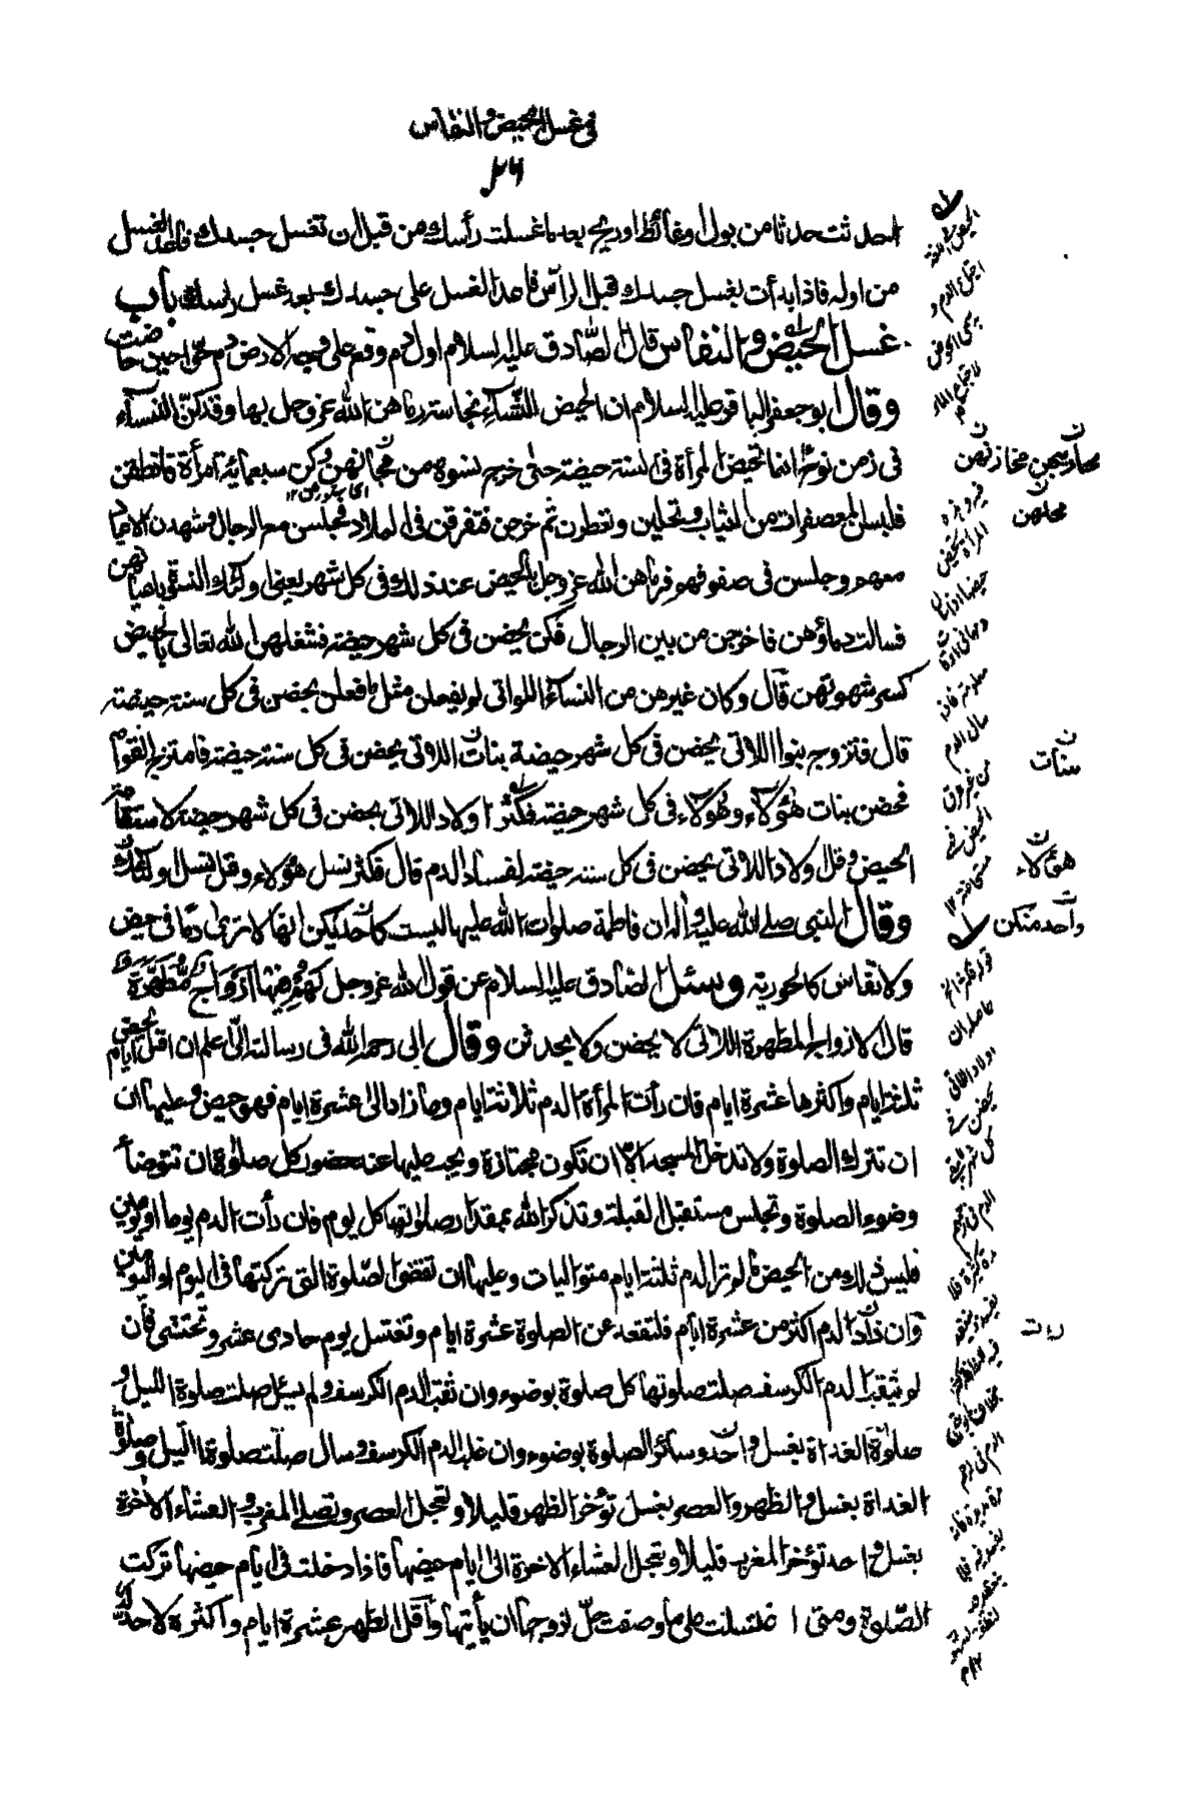 في غسل الحيض والنفاس
٢٦
احدثت حدثا من بول او غائط او ريح بعد ما غسلت رأسك من قبل ان تغسل جسدك فاعد الغسل
من اوله فاذا بدأت بغسل جسدك قبل الرأس فاعد الغسل على جسدك بعد غسل رأسك باب
غسل الحيض والنفاس قال الصادق عليه السلام اول دم وقع على وجه الارض دم حوا حين حاضت
وقال ابو جعفر الباقر عليه السلام ان الحيض للنساء نجاسة رماهن الله عز وجل بها وقد كن النساء
في زمن نوح انما تحيض المرأة في السنة حيضة حتى خرج نسوة من مجانهن وكن سبعمائة امرأة فانطلقن
فلبسن المعصفرات من الثياب وتحلين وتعطرن ثم خرجن فتفرقن في البلاد فجلسن مع الرجال وشهدن الاعياد
معهم وجلسن في صفوفهم فرماهن الله عز وجل بالحيض عند ذلك في كل شهر يعني اولئك النسوة باعيانهن
فسالت دماؤهن فاخرجن من بين الرجال فكن يحضن في كل شهر حيضة فشغلهن الله تعالى بالحيض
وكسر شهوتهن قال وكان غيرهن من النساء اللواتي لم يفعلن مثل ما فعلن يحضن في كل سنة حيضة
قال فتزوج بنوا اللاتي يحضن في كل شهر حيضة بنات اللاتي يحضن في كل سنة حيضة فامتزج القوم
فحضن بنات هؤلاء وهؤلاء في كل شهر حيضة فكثر اولاد اللاتي يحضن في كل شهر حيضة لاستقامة
الحيض وقل اولاد اللاتي يحضن في كل سنة حيضة لفساد الدم قال فكثر نسل هؤلاء وقل نسل اولئك
وقال النبي صلى الله عليه وآله ان فاطمة صلوات الله عليها ليست كاحد منكن انها لا ترى دما في حيض
ولا نفاس كالحورية وسئل الصادق عليه السلام عن قول الله عز وجل لهم فيها ازواج مطهرة
قال الازواج المطهرة اللاتي لا يحضن ولا يحدثن وقال ابي رحمه الله في رسالته الي اعلم ان اقل ايام الحيض
ثلثة ايام واكثرها عشرة ايام فان رأت المرأة الدم ثلاثة ايام وما زاد الى عشرة ايام فهو حيض وعليها ان
ان تترك الصلوة ولا تدخل المسجد الا ان تكون مجتازة ويجب عليها عند حضور كل صلوة ان تتوضأ
وضوء الصلوة وتجلس مستقبل القبلة وتذكر الله بمقدار صلوتها كل يوم فان رأت الدم يوما او يومين
فليس ذلك من الحيض ما لم تر الدم ثلثة ايام متواليات وعليها ان تقضي الصلوة التي تركتها في اليوم او اليومين
وان زاد الدم اكثر من عشرة ايام فلتقعد عن الصلوة عشرة ايام وتغتسل يوم حادي عشر وتحتشي فان
لم يثقب الدم الكرسف صلت صلوتها كل صلوة بوضوء وان ثقب الدم الكرسف ولم يسل صلت صلوة الليل و
صلوة الغداة بغسل واحد وسائر الصلوة بوضوء وان غلب الدم الكرسف وسال صلت صلوة الليل وصلوة
الغداة بغسل والظهر والعصر بغسل تؤخر الظهر قليلا وتعجل العصر وتصلي المغرب والعشاء الآخرة
بغسل واحد تؤخر المغرب قليلا وتعجل العشاء الآخرة الى ايام حيضها فاذا دخلت في ايام حيضها تركت
الصلوة ومتى اغتسلت على ما وصفت حل لزوجها ان يأتيها واقل الطهر عشرة ايام واكثره لا حد له
محاريبهن
مجلهن
بنات
هؤلاء
واحد منكن
رات